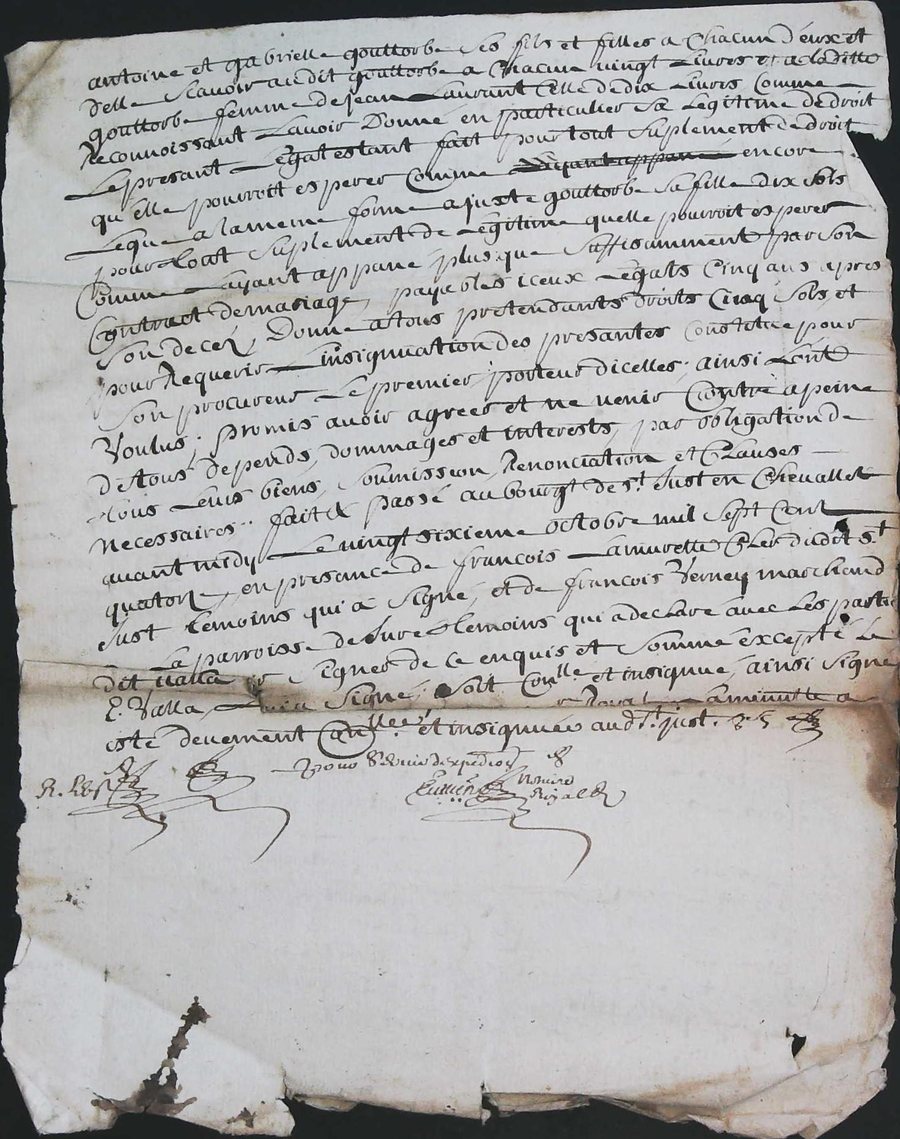 antoine et gabrielle gouttorbe ses fils et filles a Chacun d'eux et
delle scavoir audit gouttorbe a Chacun vingt Livres et a laditte
gouttorbe femme de jean Laurant Celle de dix Livres Comme
Reconnoissant Lavoir Donné en particulier sa Legitime de droit
Le presant Legat estant fait pour tout suplement de droit
qu'elle pourroit esperer Comme encore
Legue a la meme forme a juste gouttorbe sa fille dix sols
pour tout suplement de Legitime quelle pourroit esperer
Comme Layant appané plus que suffisamment par son
Contract de mariage, payables iceux Legats Cinq ans apres
son decez, Donne a tous pretendants droits Cinq sols, et
pour Requerir Linsignuation des presantes Constitue pour
son procureur Le premier porteur dicelles; ainsi Lont
Voulus; promis avoir agrees et ne venir Contre a peine
de tous depends, dommages et interests, par obligation de
tous Leurs biens, soumission, Renonciation et Clauses
necessaires: fait & passé au bourgt de st. Just en Chevallet
avant midy Le vingt sixieme octobre mil sept Cent
quatorze, en presance de françois Lamurette Cler dudit st
Just temoins qui a signé, et de françois Verney marchand
La parroisse de Jure temoins qui a declaré avec Les parties
dit Valla signer de ce enquis et somme excepté Le
E. Valla, signé, soit Conllé et insignué, ainsi signé
Royal Laminutte a
esté devement Conllee et insignuée aud. st. just. 35
pour Expedio
Notaire
Royal